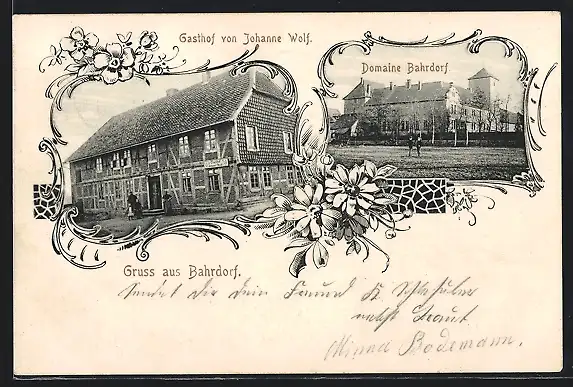 Gasthof von Johanne Wolf.
Domaine Bahrdorf.
Gruss aus Bahrdorf.
Sendet Dir dein Freund H. Schlehüber
nebst Braut
Minna Bodemann.